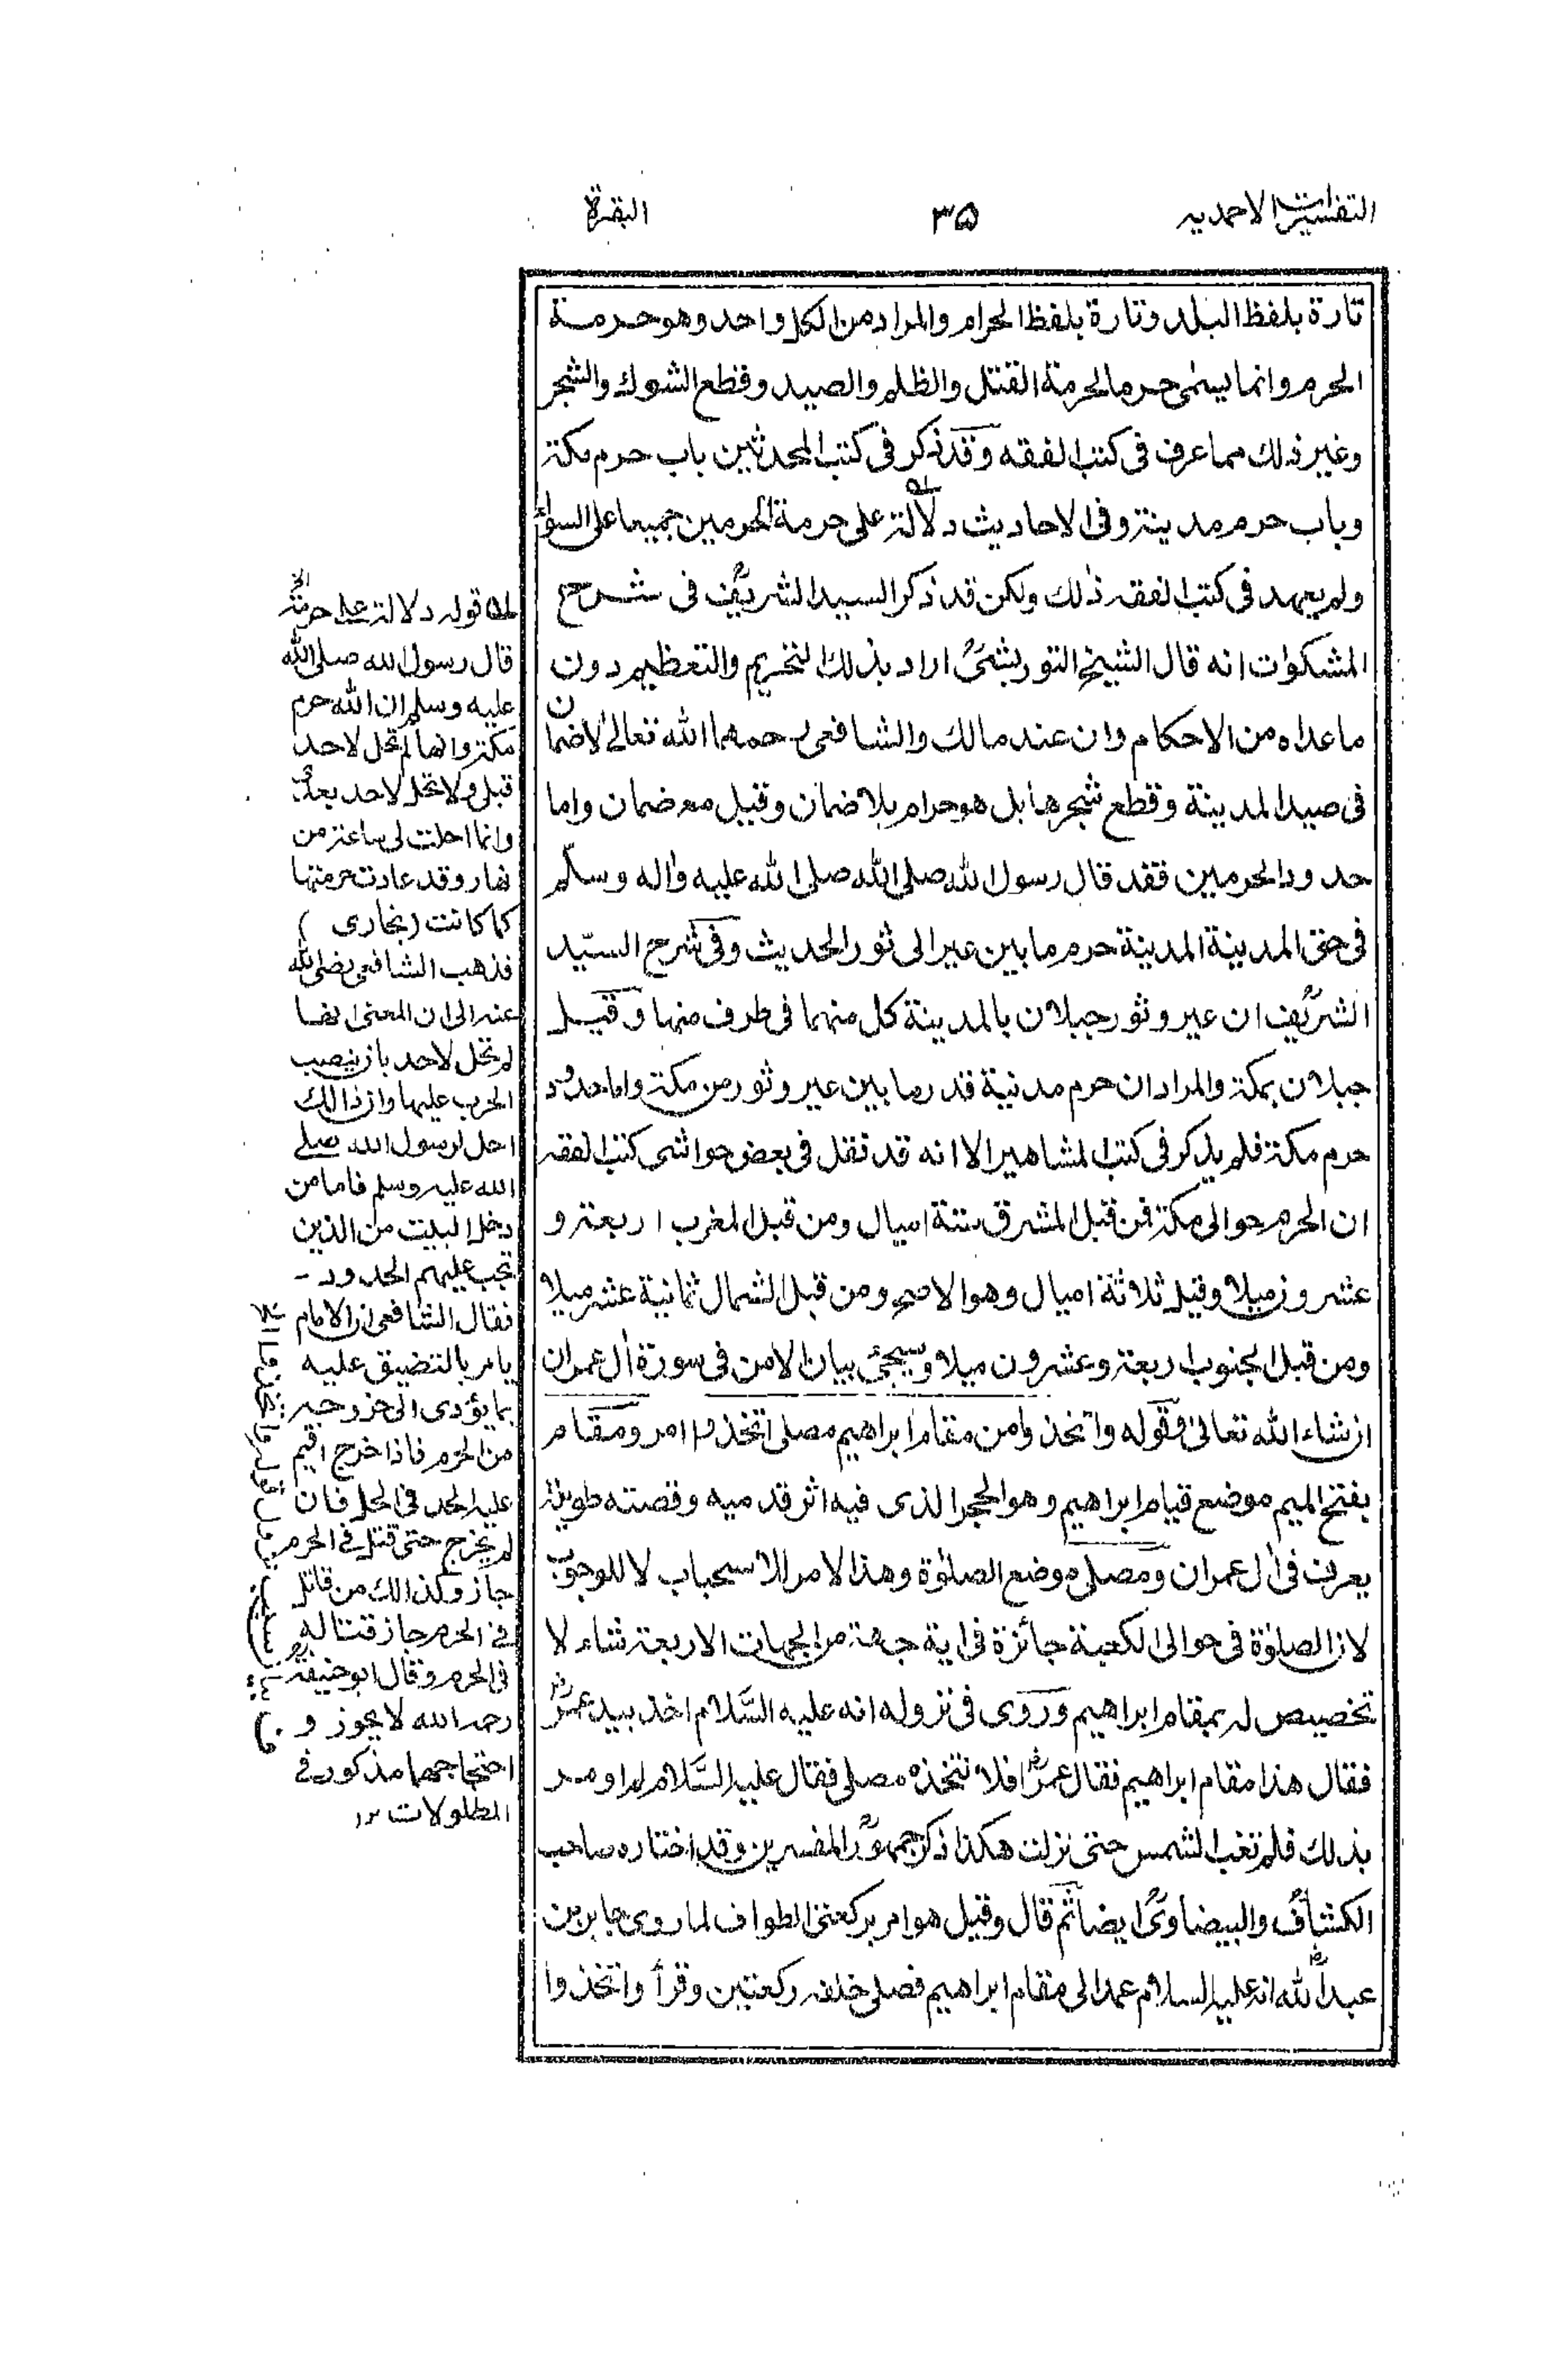 التفسيرات الاحمديه
٣٥
البقرة
تارة بلفظ البلد وتارة بلفظ الحرام والمراد من الكل واحد وهو حرمة
الحرم وانما يسمى حرما لحرمة القتل والظلم والصيد وقطع الشوك والشجر
وغير ذلك مما عرف فى كتب الفقه وقد ذكر فى كتب المحدثين باب حرم مكة
وباب حرم مدينة وفى الاحاديث دلالة على حرمة الحرمين جميعا على السواء
ولم يعهد فى كتب الفقه ذلك ولكن قد ذكر السيد الشريف فى شرح
المشكوات انه قال الشيخ التوربشتى اراد بذلك التحريم والتعظيم دون
ما عداه من الاحكام وان عند مالك والشافعى رحمهما الله تعالى لا ضمان
فى صيد المدينة وقطع شجرها بل هو حرام بلا ضمان وقيل مع ضمان واما
حدود الحرمين فقد قال رسول الله صلى الله صلى الله عليه واله وسلم
فى حق المدينة المدينة حرم ما بين عير الى ثور الحديث وفى شرح السيّد
الشريف ان عير وثور جبلان بالمدينة كل منهما فى طرف منها وقيل
جبلان بمكة والمراد ان حرم مدنية قدر ما بين عير وثور من مكة واما حدود
حرم مكة فلم يذكر فى كتب المشاهير الا انه قد نقل فى بعض حواشى كتب الفقه
ان الحرم حوالى مكة فمن قبل المشرق ستة اميال ومن قبل المغرب اربعة و
عشرون ميلا وقيل ثلاثة اميال وهو الاصح ومن قبل الشمال ثمانية عشر ميلا
ومن قبل الجنوب اربعة وعشرون ميلا وسيجئ بيان الامن فى سورة آل عمران
ان شاء الله تعالى وقوله واتخذوا من مقام ابراهيم مصلى اتخذوا امر ومقام
بفتح الميم موضع قيام ابراهيم وهو الحجر الذى فيه اثر قدميه وقصته طويلة
يعرف فى آل عمران ومصلى موضع الصلوة وهذا الامر للاستحباب لا للوجوب
لان الصلوة فى حوالى الكعبة جائزة فى اية جهة من الجهات الاربعة شاء لا
تخصيص له بمقام ابراهيم وروى فى نزوله انه عليه السَّلام اخذ بيد عمرؓ
فقال هذا مقام ابراهيم فقال عمرؓ افلا نتخذه مصلى فقال عليه السَّلام لم اومر
بذلك فلم تغب الشمس حتى نزلت هكذا ذكر جمهور المفسرين وقد اختاره صاحب
الكشاف والبيضاوى ايضا ثم قال وقيل هو امر بركعتى الطواف لما روى جابر بن
عبد الله انه عليه السلام عمد الى مقام ابراهيم فصلى خلفه ركعتين وقرأ واتخذوا
له قوله دلالة على حرمة الخ
قال رسول الله صلى الله
عليه وسلم ان الله حرم
مكة وانها لم تحل لاحد
قبلى ولا تحل لاحد بعدى
وانما احلت لى ساعة من
نهار وقد عادت حرمتها
كما كانت (بخارى)
فذهب الشافعى رضى الله
عنه الى ان المعنى انها
لم تحل لاحد بان ينصب
الحرب عليها وان ذالك
احل لرسول الله صلے
الله عليه وسلم فاما من
دخل البيت من الذين
تجب عليهم الحدود -
فقال الشافعى ان الامام
يامر بالتضيق عليه
بما يؤدى الى خروجه
من الحرم فاذا خرج اقيم
عليه الحد فى الحل فان
لم يخرج حتى قتل فے الحرم
جاز وكذالك من قاتل
فے الحرم جاز قتاله
فى الحرم وقال ابوحنيفة
رحمه الله لا يجوز و
احتجاجهما مذكور فے
المطولات ١٢